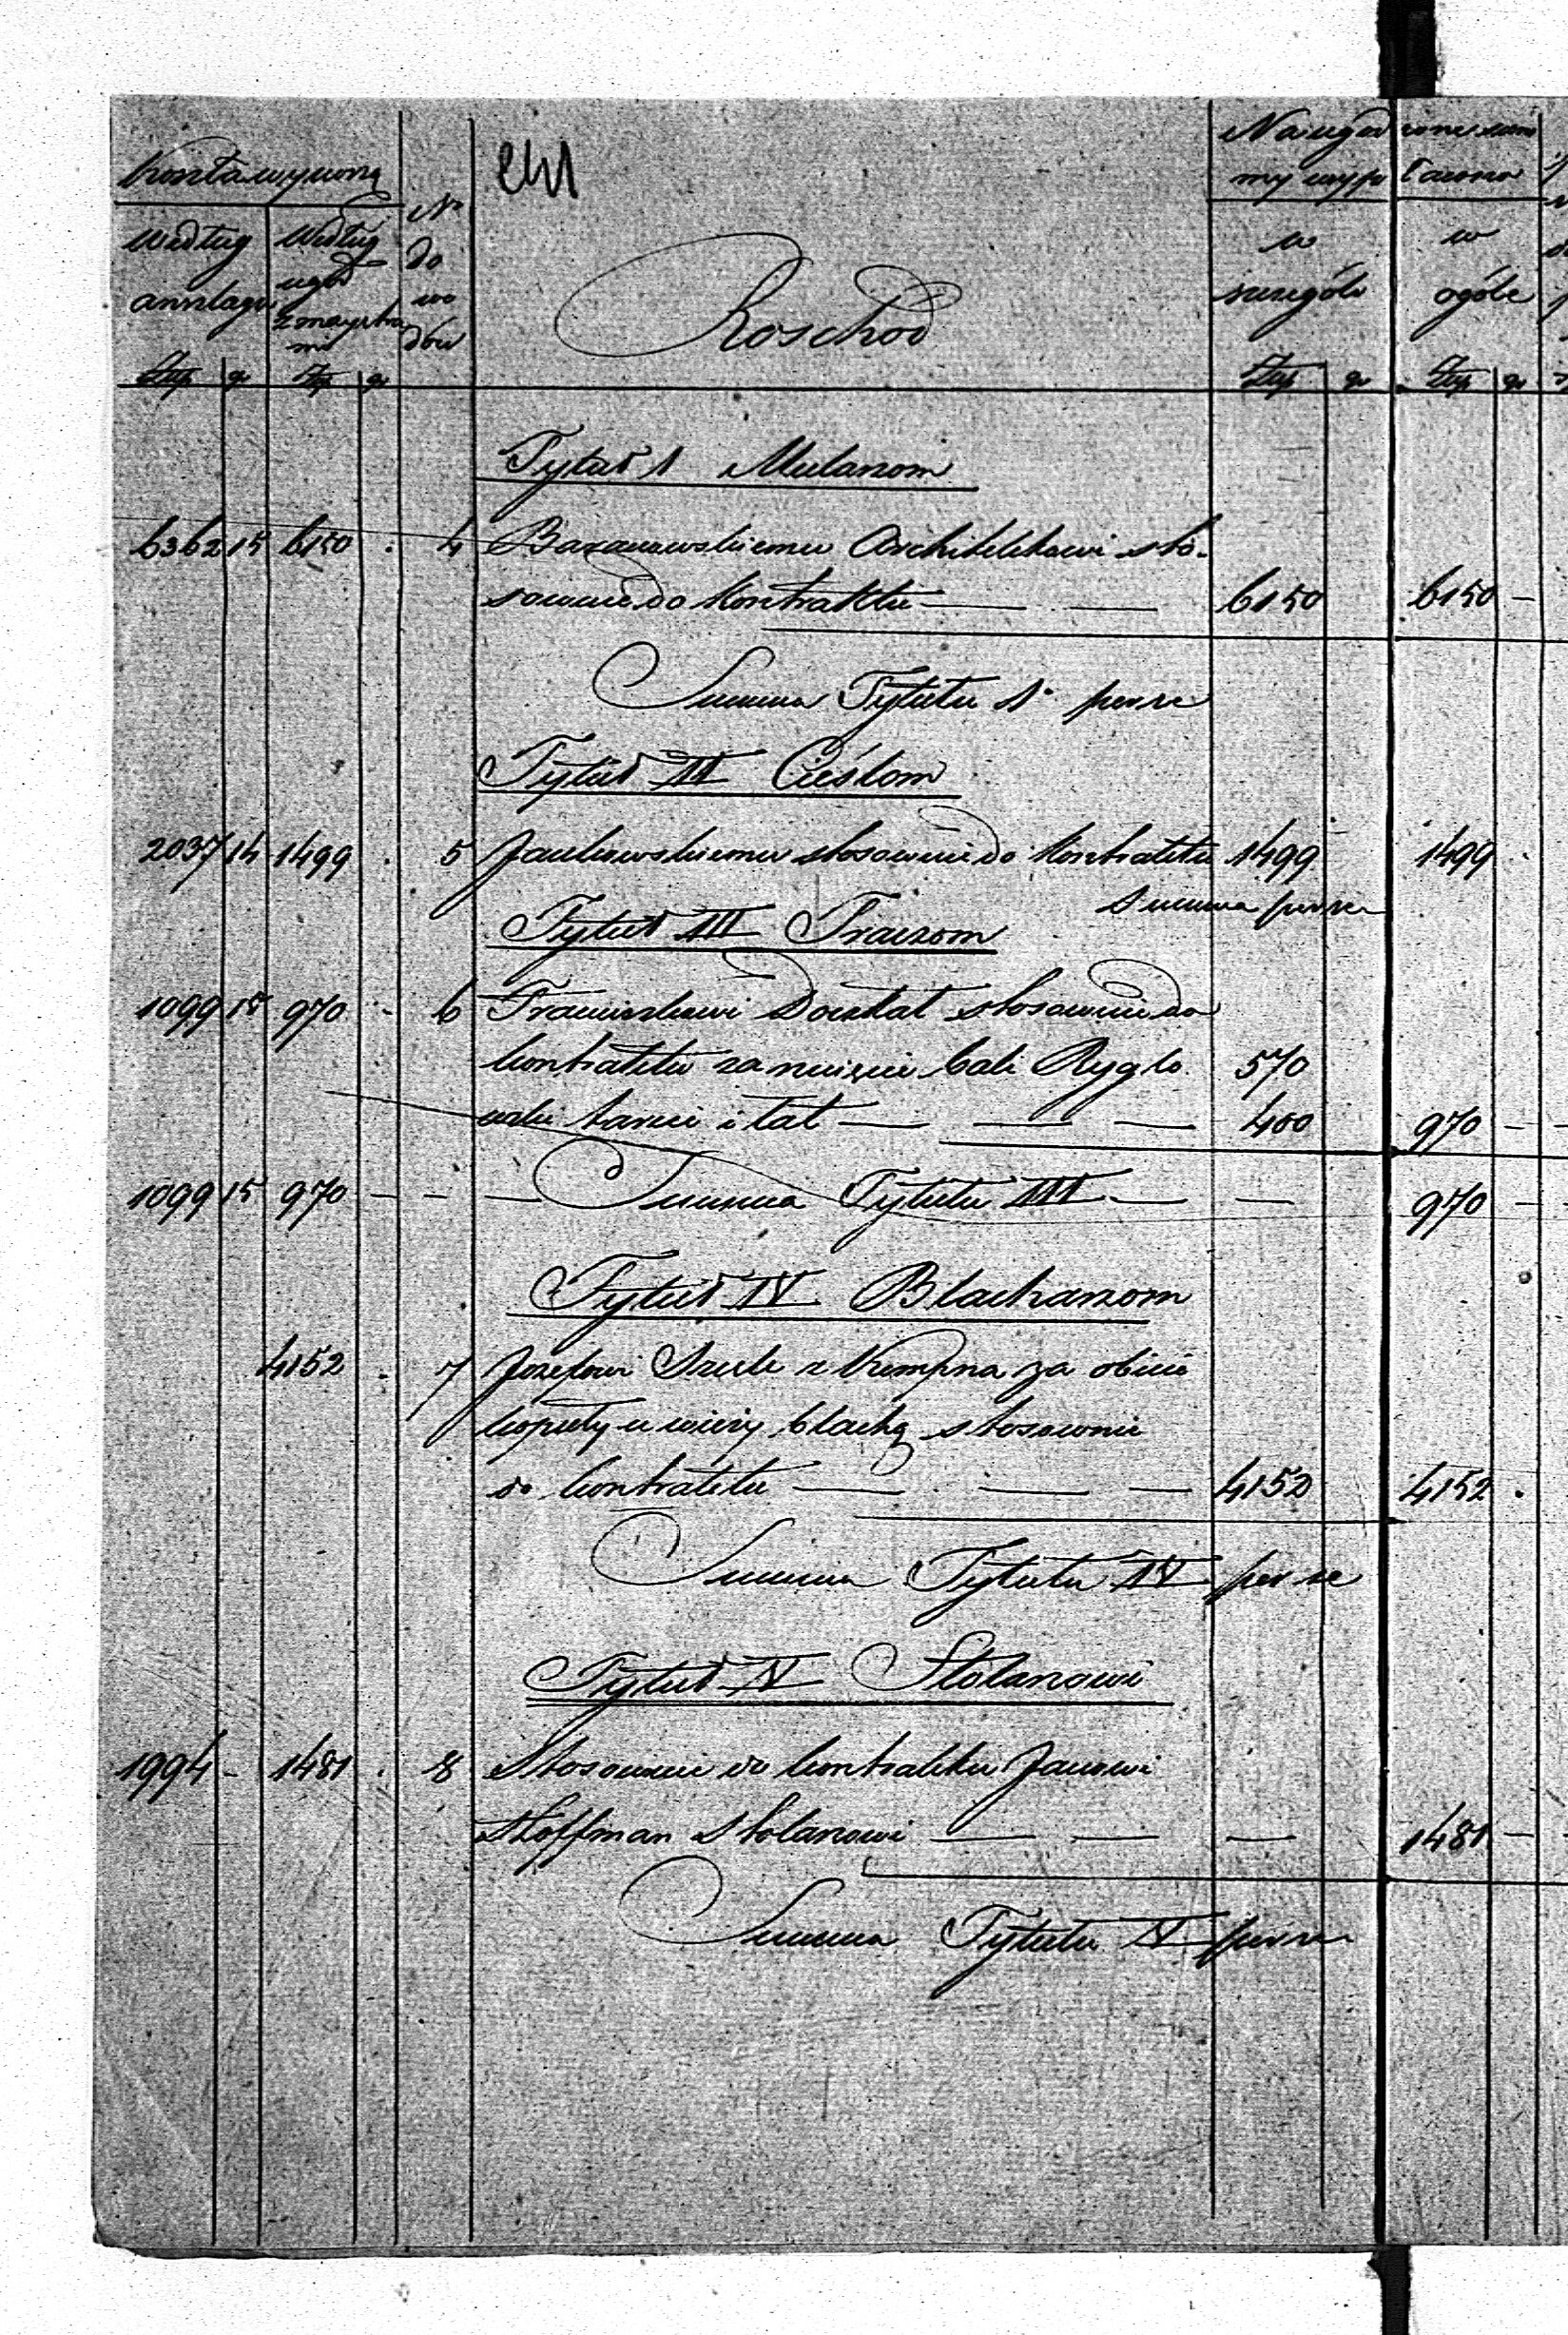 Koszta wynoszą
Na ugodzone sum
my wypłacono
według anszlagu
według ugód z maystra mi
No do wo dów
w szczególe
w ogóle
Złp gr Złp gr Złp gr Złp gr
Roschod
Tytuł I Mularzom
6362 15 6150 . 4 Baranowskiemu Architektowi sto-
sownie do Kontraktu — — 6150 6150 –
Summa Tytułu I perse
Tytuł II Cieślom
2037 14 1499 . 5 Jankowskiemu stosownie do Kontraktu 1499 1499 .
Summa perse
Tytuł III Traczom
1099 15 970 . 6 Franciszkowi stosownie do
kontraktu za rznięcie bali Ryglo 570
tarcic i łat — — — 400 970 –
1099 15 970 – – – Summa Tytułu III — — 970 –
Tytuł IV Blacharzom
4152 . 7 Jozefowi z Kempna za obicie
kopuły u wieży blachą stosownie
do kontraktu — — — 4152 4152 .
Summa Tytułu IV per se
Tytuł V Stolarzowi
1994 – 1481 . 8 Stosownie do kontraktu Janowi
Hoffman stolarzowi — — — 1481 –
Summa Tytułu V perse